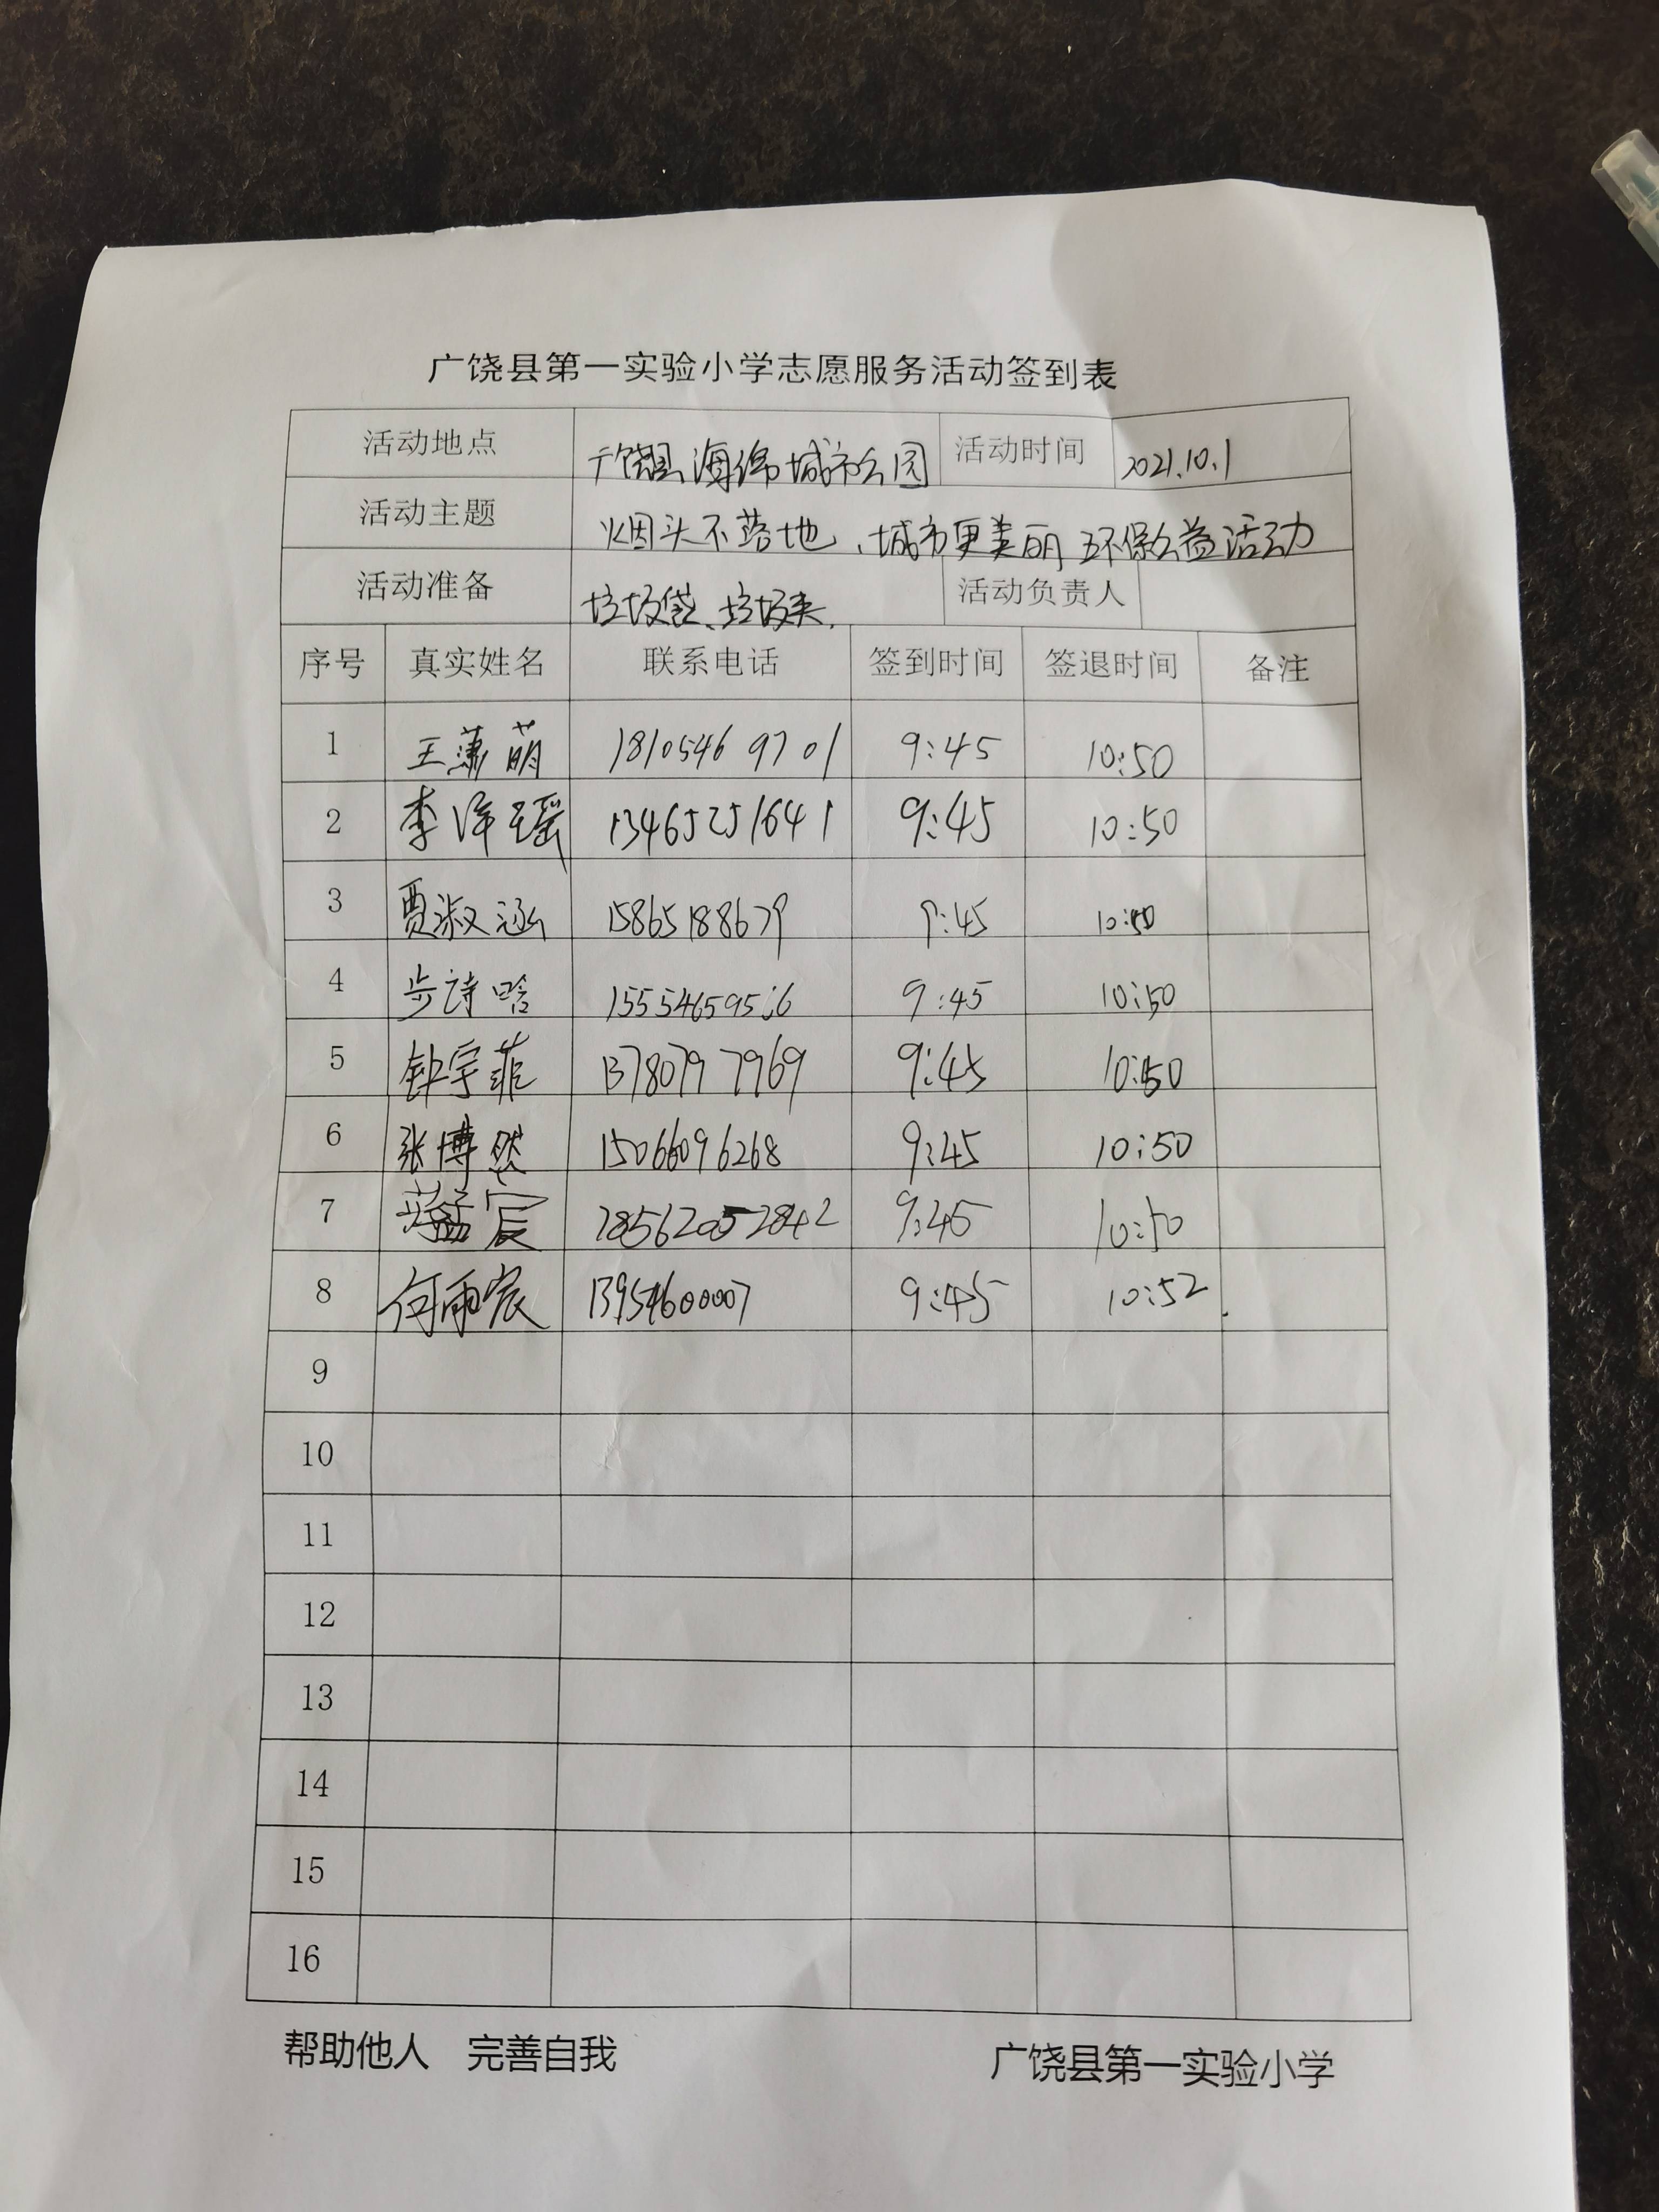 广饶县第一实验小学志愿服务活动签到表
活动地点 广饶县海绵城市公园 活动时间 2021.10.1
活动主题 烟头不落地、城市更美丽 环保公益活动
活动准备 垃圾袋、垃圾夹. 活动负责人
序号 真实姓名 联系电话 签到时间 签退时间 备注
1 王潇萌 18105469701 9:45 10:50
2 李泽瑶 13465251641 9:45 10:50
3 贾淑涵 15865188679 9:45 10:50
4 步诗晗 9:45 10:50
5 钟宇菲 13780797969 9:45 10:50
6 张博然 15066096268 9:45 10:50
7 9:45 10:50
8 何雨宸 13954600007 9:45 10:52
9
10
11
12
13
14
15
16
帮助他人 完善自我 广饶县第一实验小学